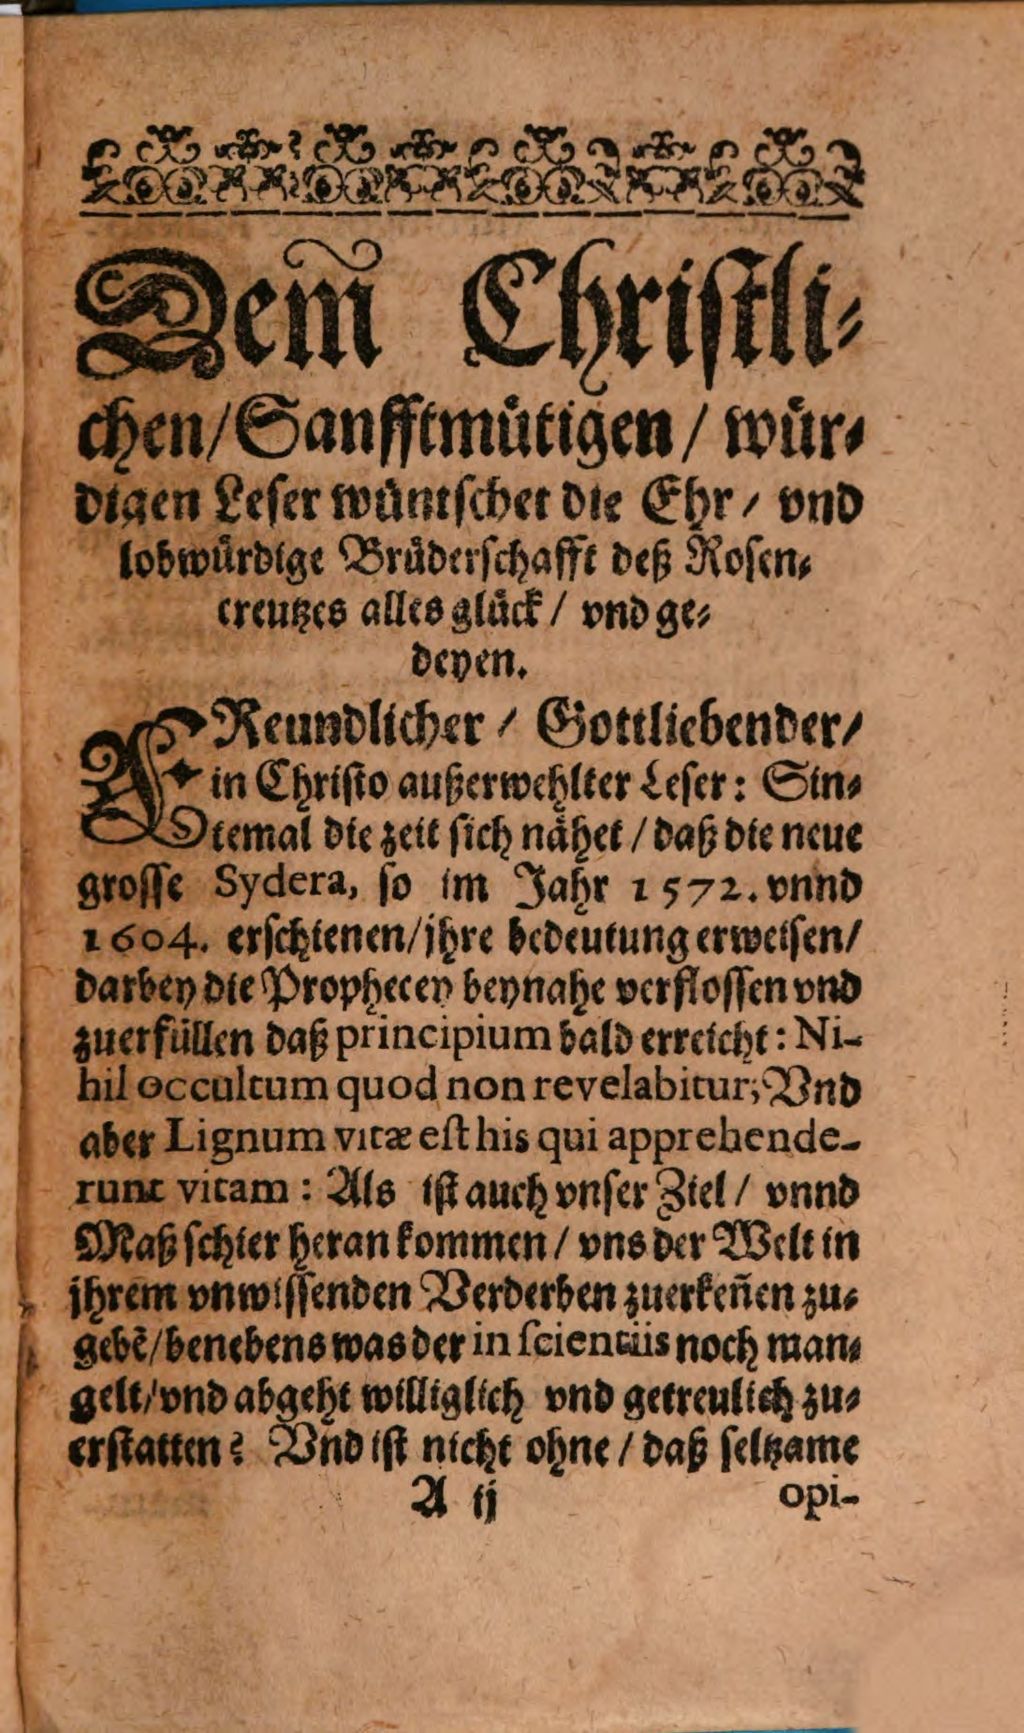 Dem̃ Christli⸗
chen/ Sanfftmütigen/ wür⸗
digen Leser wüntschet die Ehr/ vnd
lobwürdige Brüderschafft deß Rosen⸗
creutzes alles glück/ vnd ge⸗
deyen.
FReundlicher/ Gottliebender/
in Christo außerwehlter Leser: Sin⸗
temal die zeit sich nähet/ daß die neue
grosse Sydera, so im Jahr 1572. vnnd
1604. erschienen/ jhre bedeutung erweisen/
darbey die Prophecey beynahe verflossen vnd
zuerfüllen daß principium bald erreicht: Ni-
hil occultum quod non revelabitur; Vnd
aber Lignum vitæ est his qui apprehende-
runt vitam: Als ist auch vnser Ziel/ vnnd
Maß schier heran kommen/ vns der Welt in
jhrem vnwissenden Verderben zuerkeñen zu⸗
gebẽ/ benebens was der in scientiis noch man⸗
gelt/ vnd abgeht williglich vnd getreulich zu⸗
erstatten? Vnd ist nicht ohne/ daß seltzame
A ij opi-